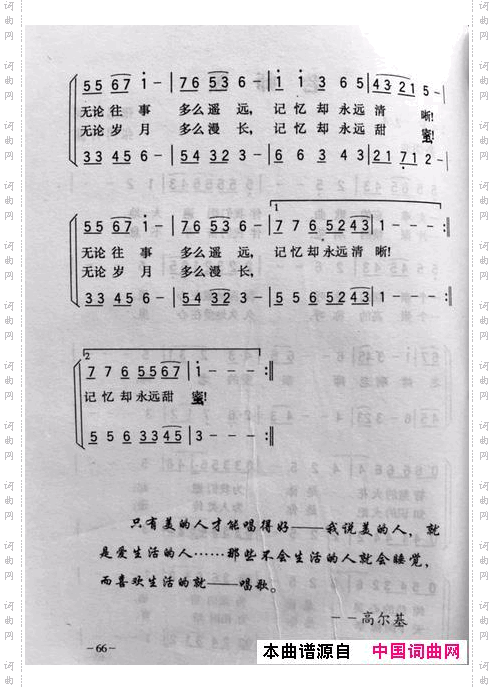 5 5 6 7 i - | 7 6 5 3 6 - | i i 3 6 5 | 4 3 2 1 5 -
无论往事 多么遥远, 记忆却永远清 晰!
无论岁月 多么漫长, 记忆却永远甜 蜜!
3 3 4 5 6 - | 5 4 3 2 3 - | 6 6 1 4 3 | 2 1 7 1 2 -
1
5 5 6 7 i - | 7 6 5 3 6 - | 7 7 6 5 2 4 3 | 1 - - - :||
无论往事 多么遥远, 记忆却永远清晰!
无论岁月 多么漫长,
3 3 4 5 6 - | 5 4 3 2 3 - | 5 5 6 5 2 4 3 | 1 - - - :||
2
7 7 6 5 5 6 7 | i - - - :||
记忆却永远甜 蜜!
5 5 6 3 3 4 5 | 3 - - - :||
只有美的人才能唱得好——我说美的人，就
是爱生活的人……那些不会生活的人就会睡觉，
而喜欢生活的就——唱歌。
——高尔基
- 66 -
本曲谱源自 中国词曲网